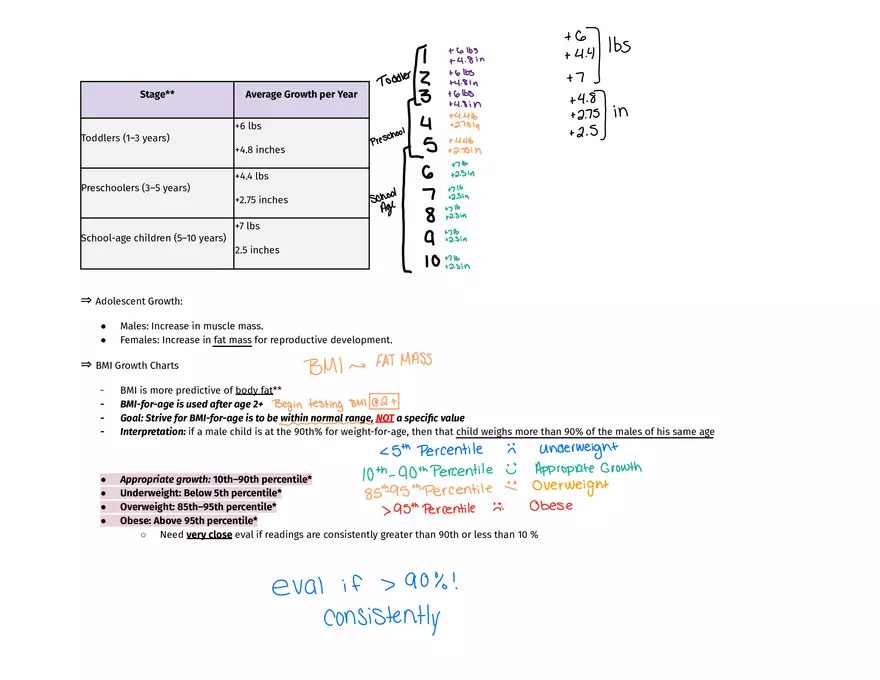 Stage** Average Growth per Year
Toddlers (1–3 years)
+6 lbs
+4.8 inches
Preschoolers (3–5 years)
+4.4 lbs
+2.75 inches
School-age children (5–10 years)
+7 lbs
2.5 inches
Toddler
Preschool
School
Age
1 +6 lbs
+4.8 in
2 +6 lbs
+4.8 in
3 +6 lbs
+4.8 in
4 +4.4lb
+2.75in
5 +4.4lb
+2.75in
6 +7lb
+2.5in
7 +7lb
+2.5in
8 +7lb
+2.5in
9 +7lb
+2.5in
10 +7lb
+2.5in
+6
+4.4 lbs
+7
+4.8
+2.75 in
+2.5
⇒ Adolescent Growth:
● Males: Increase in muscle mass.
● Females: Increase in fat mass for reproductive development.
⇒ BMI Growth Charts
BMI → FAT MASS
- BMI is more predictive of body fat**
- BMI-for-age is used after age 2+ Begin testing BMI @2+
- Goal: Strive for BMI-for-age is to be within normal range, NOT a specific value
- Interpretation: if a male child is at the 90th% for weight-for-age, then that child weighs more than 90% of the males of his same age
<5th Percentile :( underweight
10th-90th Percentile :) Appropiate Growth
85th-95th Percentile :/ Overweight
>95th Percentile :( Obese
● Appropriate growth: 10th–90th percentile*
● Underweight: Below 5th percentile*
● Overweight: 85th–95th percentile*
● Obese: Above 95th percentile*
○ Need very close eval if readings are consistently greater than 90th or less than 10 %
eval if > 90%!
consistently